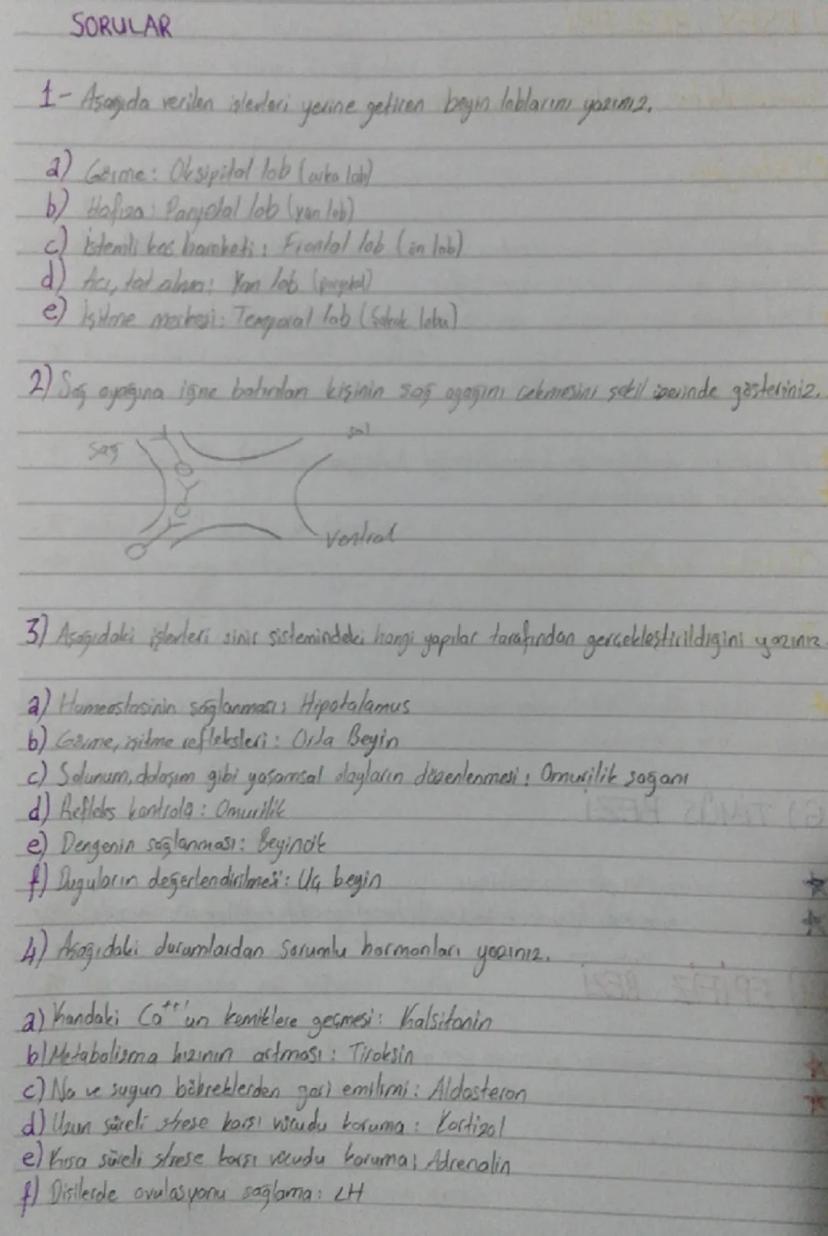 SORULAR
1- Aşağıda verilen işlevleri yerine getiren beyin loblarını yazınız.
a) Görme: Oksipital lob (arka lob)
b) Hafıza: Paryetal lob (yan lob)
c) İstemli kas hareketi: Frontal lob (ön lob)
d) Acı, tat alma: Yan lob (paryetal)
e) İşitme merkezi: Temporal lob (Şakak lobu)
2) Sağ ayağına iğne batırılan kişinin sağ ayağını çekmesini şekil üzerinde gösteriniz.
Sağ
sol
Ventral
3) Aşağıdaki işlevleri sinir sistemindeki hangi yapılar tarafından gerçekleştirildiğini yazınız
a) Homeostasinin sağlanması: Hipotalamus
b) Görme, işitme refleksleri: Orta Beyin
c) Solunum, dolaşım gibi yaşamsal olayların düzenlenmesi: Omurilik soğanı
d) Refleks kontrolü: Omurilik
e) Dengenin sağlanması: Beyincik
f) Duyuların değerlendirilmesi: Uç beyin
4) Aşağıdaki durumlardan sorumlu hormonları yazınız.
a) Kandaki Ca⁺⁺'un kemiklere geçmesi: Kalsitonin
b) Metabolizma hızının artması: Tiroksin
c) Na ve suyun böbreklerden geri emilimi: Aldosteron
d) Uzun süreli strese karşı vücudu koruma: Kortizol
e) Kısa süreli strese karşı vücudu koruma: Adrenalin
f) Dişilerde ovulasyonu sağlama: LH